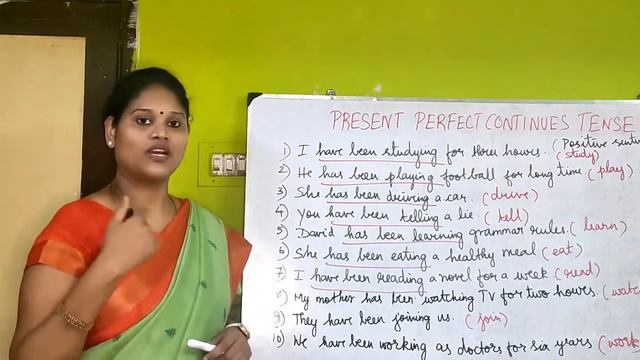 PRESENT PERFECT CONTINUES TENSE
1) I have been studying for three hours. (Positive
(study)
2) He has been playing football for long time. (play)
3) She has been driving a car. (drive)
4) You have been telling a lie. (tell)
5) David has been learning grammar rules. (learn)
6) She has been eating a healthy meal (eat)
7) I have been reading a novel for a week (read)
8) My mother has been watching TV for two hours.
9) They have been joining us. (join)
10) We have been working as doctors for six years (work